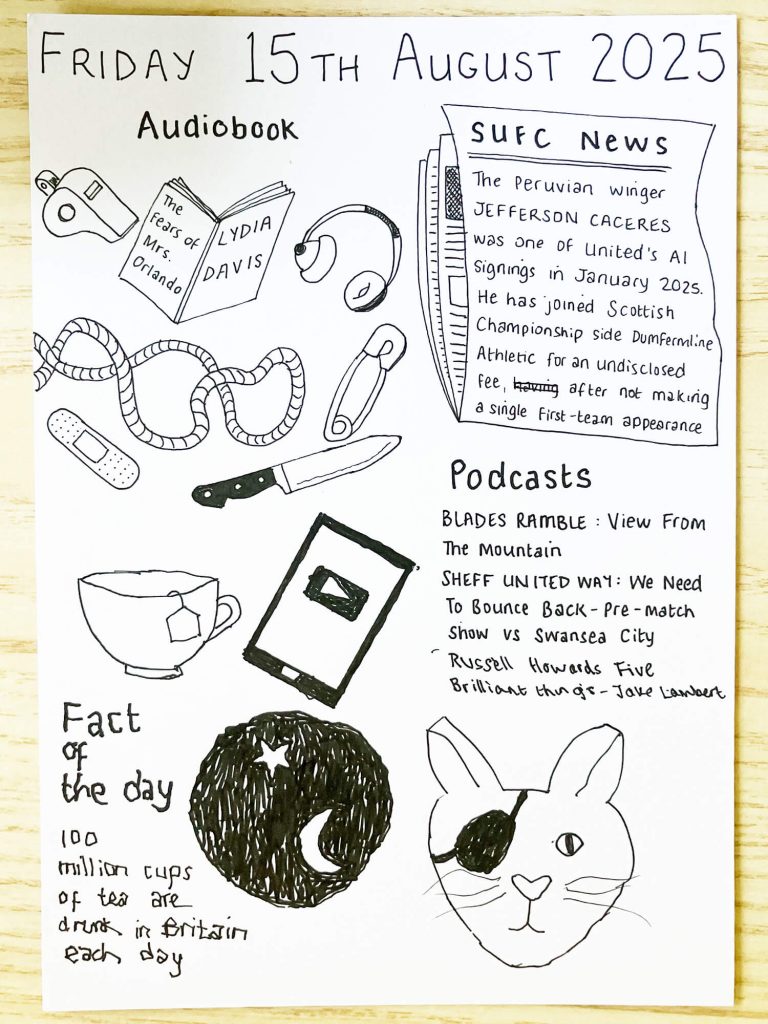 FRIDAY 15TH AUGUST 2025
Audiobook
The
Fears of
Mrs.
Orlando
LYDIA
DAVIS
SUFC News
The Peruvian winger
JEFFERSON CACERES
was one of United's AI
Signings in January 2025.
He has joined Scottish
Championship side Dumfermline
Athletic for an undisclosed
fee, having after not making
a single first-team appearance
Podcasts
BLADES RAMBLE : View From
The Mountain
SHEFF UNITED WAY: We Need
To Bounce Back - Pre-match
Show vs Swansea City
Russell Howards Five
Brilliant things - Jake Lambert
Fact
of
the day
100
million cups
of tea are
drunk in Britain
each day